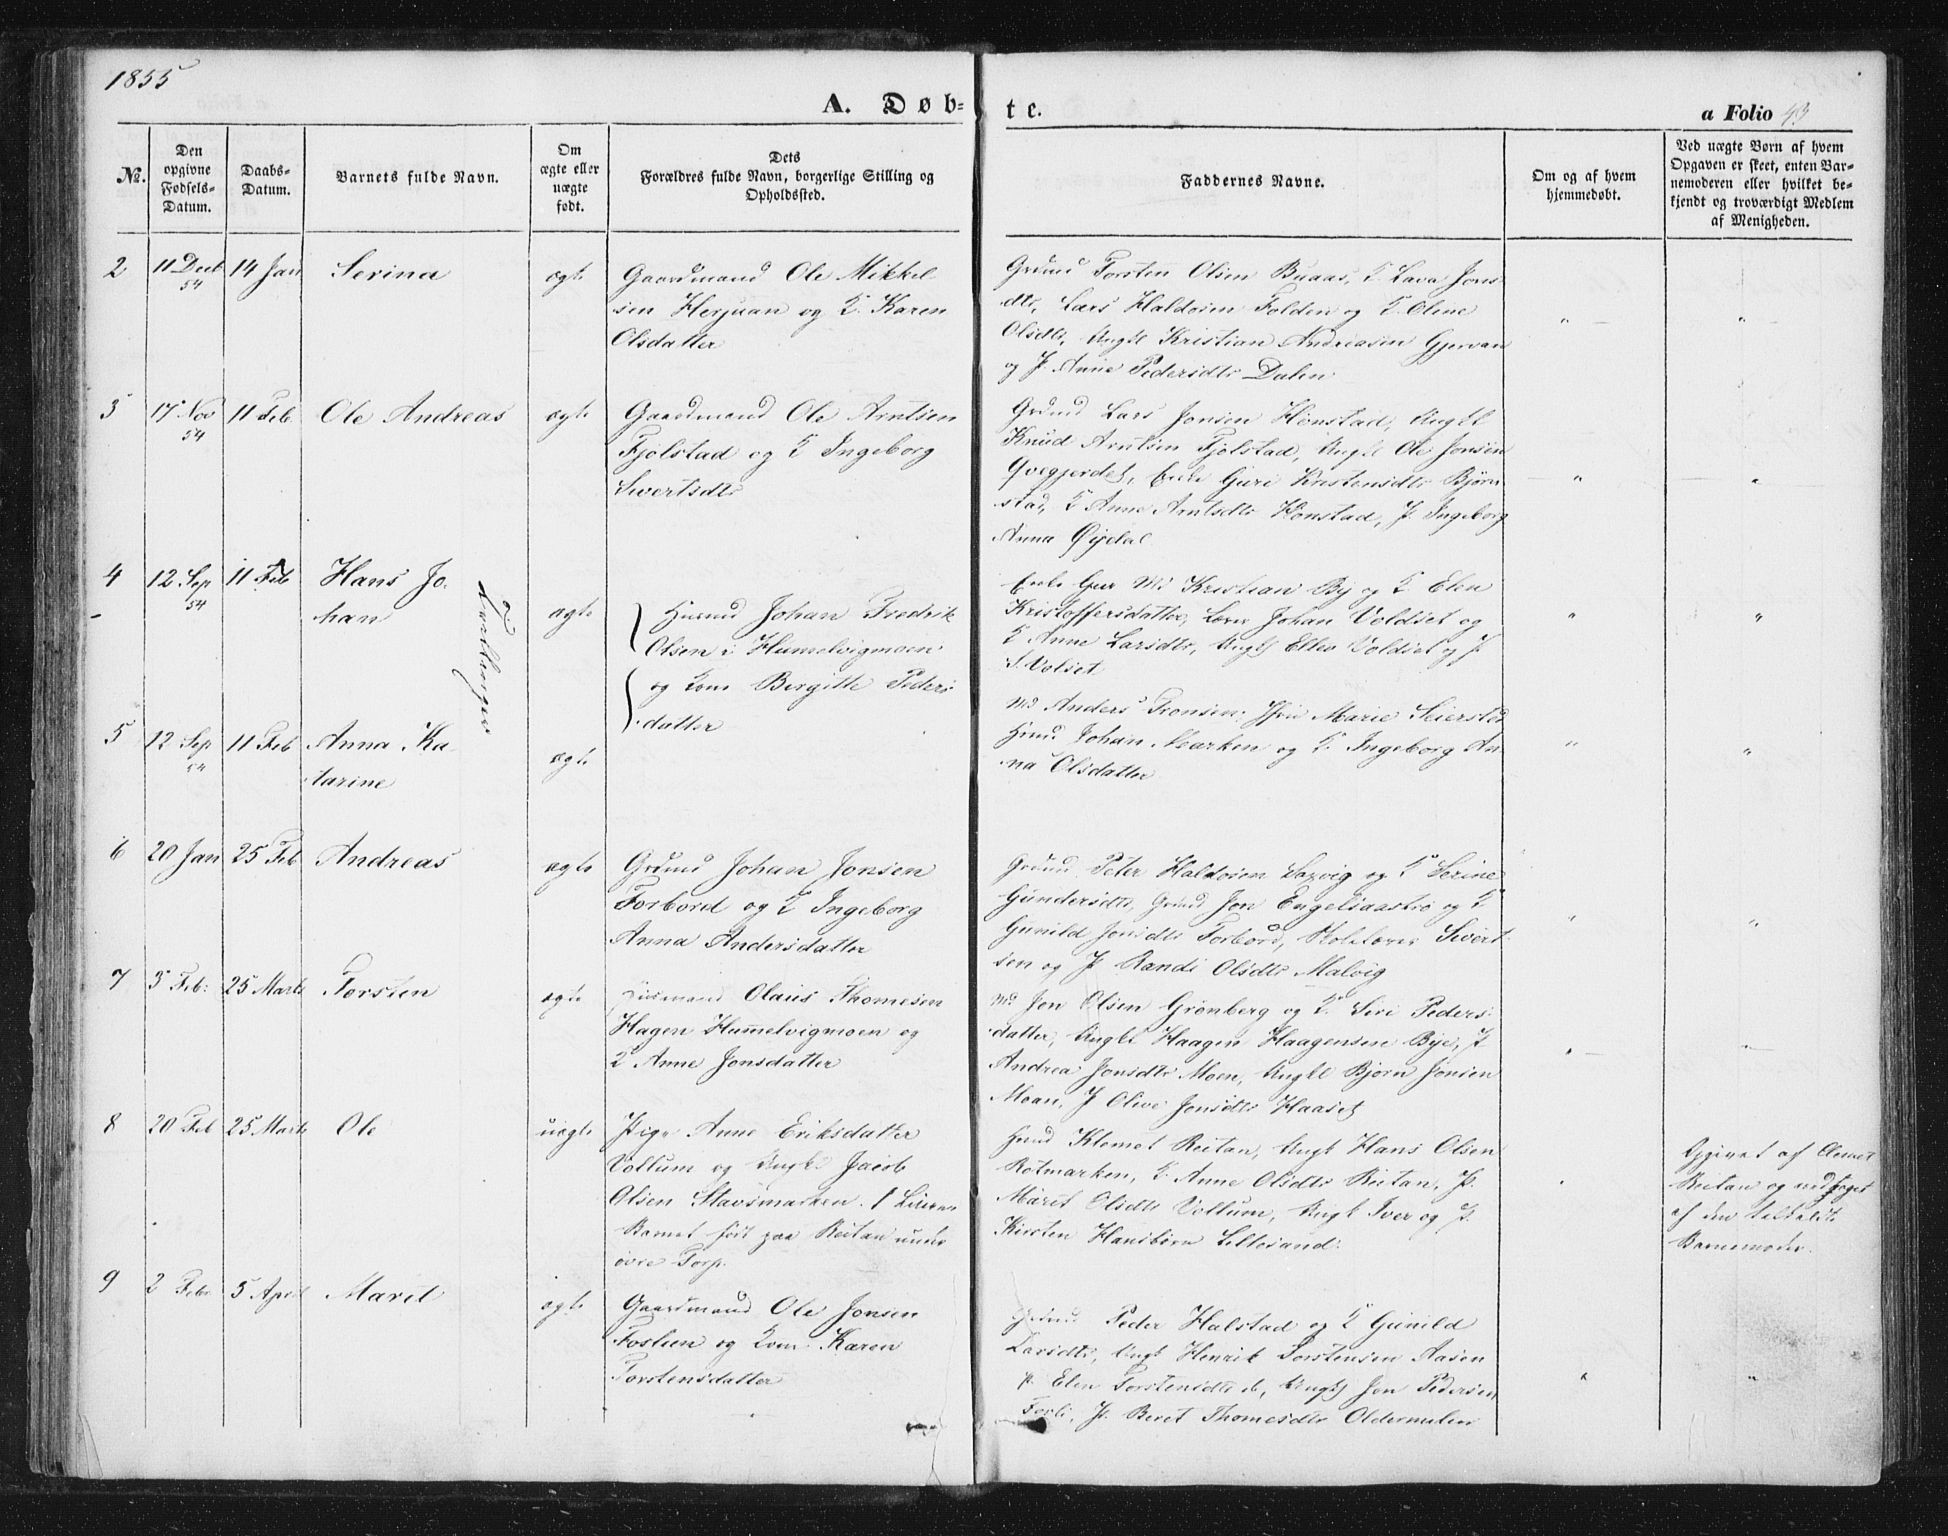 1855
A. Døb-
te.
a Folio 43
№.
Den opgivne Fødsels-Datum.
Daabs-Datum.
Barnets fulde Navn.
Om ægte eller uægte født.
Dets Forældres fulde Navn, borgerlige Stilling og Opholdssted.
Faddernes Navne.
Om og af hvem hjemmedøbt.
Ved uægte Børn af hvem Opgaven er skeet, enten Barnemoderen eller hvilket bekjendt og troværdigt Medlem af Menigheden.
2 11 Decb 54 14 Jan Serina ægte
Gaardmand Ole Mikkel
sen Herjuan og K. Karen
Olsdatter
Grdmd Torsten Olsen Buaas, K. Lava Jons
dtr, Lars Haldosen Folden og K. Oline
Olsdtr, Ungkl Kristian Andreasen Gjervan
og P. Anne Pedersdtr Dalen
3 17 Nov 54 11 Feb. Ole Andreas ægte
Gaardmand Ole Arntsen
Fjølstad og K Ingeborg
Sivertsdtr
Grdmd Lars Jonsen Hønstad, Ungkl
Knud Arntsen Fjølstad, Ungkl Ole Jonsen
Qvegjerdet, Enke Guri Kristensdtr Bjørn
stad, K Anne Arntsdtr Hønstad, P. Ingeborg
Anna Øijdal
4 12 Sep 54 11 Feb Hans Jo-
han
Tvillinger
ægte
Husmd Johan Fredrik
Olsen i Hummelvigmoen
og Kone Bergitte Peders
datter
Kristian By og K Elen
Kristoffersdatter, Johan Voldset og
K Anne Larsdtr, Ungk Voldset og P
Volset
5 12 Sep 54 11 Feb Anna Ka-
tarine
ægte
Md Anders Tronsen, Marie Seierstad
Husmd Johan Marken og K. Ingeborg An
na Olsdatter
6 20 Jan 25 Feb Andreas ægte
Grdmd Johan Jonsen
Forbord og K Ingeborg
Anna Andersdatter
Grdmd Peter Haldosen Saxvig og K Serine
Gundersdtr, Grdmd Jon Engelsaastrø og K
Gunild Jonsdtr Forbord, Skolelærer Sivert
sen og P Randi Olsdtr Malvig
7 3 Feb. 25 Marts Torsten ægte
Husmand Olaus Thomesen
Hagen Hummelvigmoen og
K Anne Jonsdatter
Md Jon Olsen Grønberg og K. Siri Peders
datter, Ungkl Haagen Haagensen Bye, P
Andrea Jonsdtr Moen, Ungkl Bjørn Jonsen
Moan, P Olive Jonsdtr Haaset
8 20 Feb 25 Marts Ole uægte
Pige Anne Eriksdatter
Vollum og Ungkl Jacob
Olsen Stavsmarken.
Barnet født paa Reitan under
øvre Torp.
Husmd Klemet Reitan, Ungk Hans Olsen
Rotmarken, K. Anne Olsdtr Reitan, P.
Marit Olsdtr Vollum, Ungk Iver og P.
Kirsten Hansbørn Lillesand.
Opgivet af Clemet
Reitan og vedtaget
af den
Barnemoder.
9 2 Febr 5 April Marit ægte
Gaardmand Ole Jonsen
Foslien og Kone Karen
Torstensdatter
Grdmd Peder Halstad og K Gunild
Larsdtr, Ungk Henrik Torstensen Aasen
P. Elen Torstensdtr d., Ungk Jon Pedersen
P. Beret Thomesdtr Oldermelen